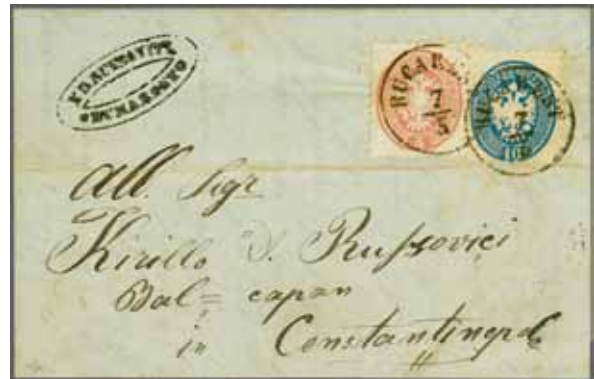 BUCAREST
7/5
BUCAREST
7
10
All. Sigr
Kirillo D. Russovici
Bal= capan
in Constantinopol